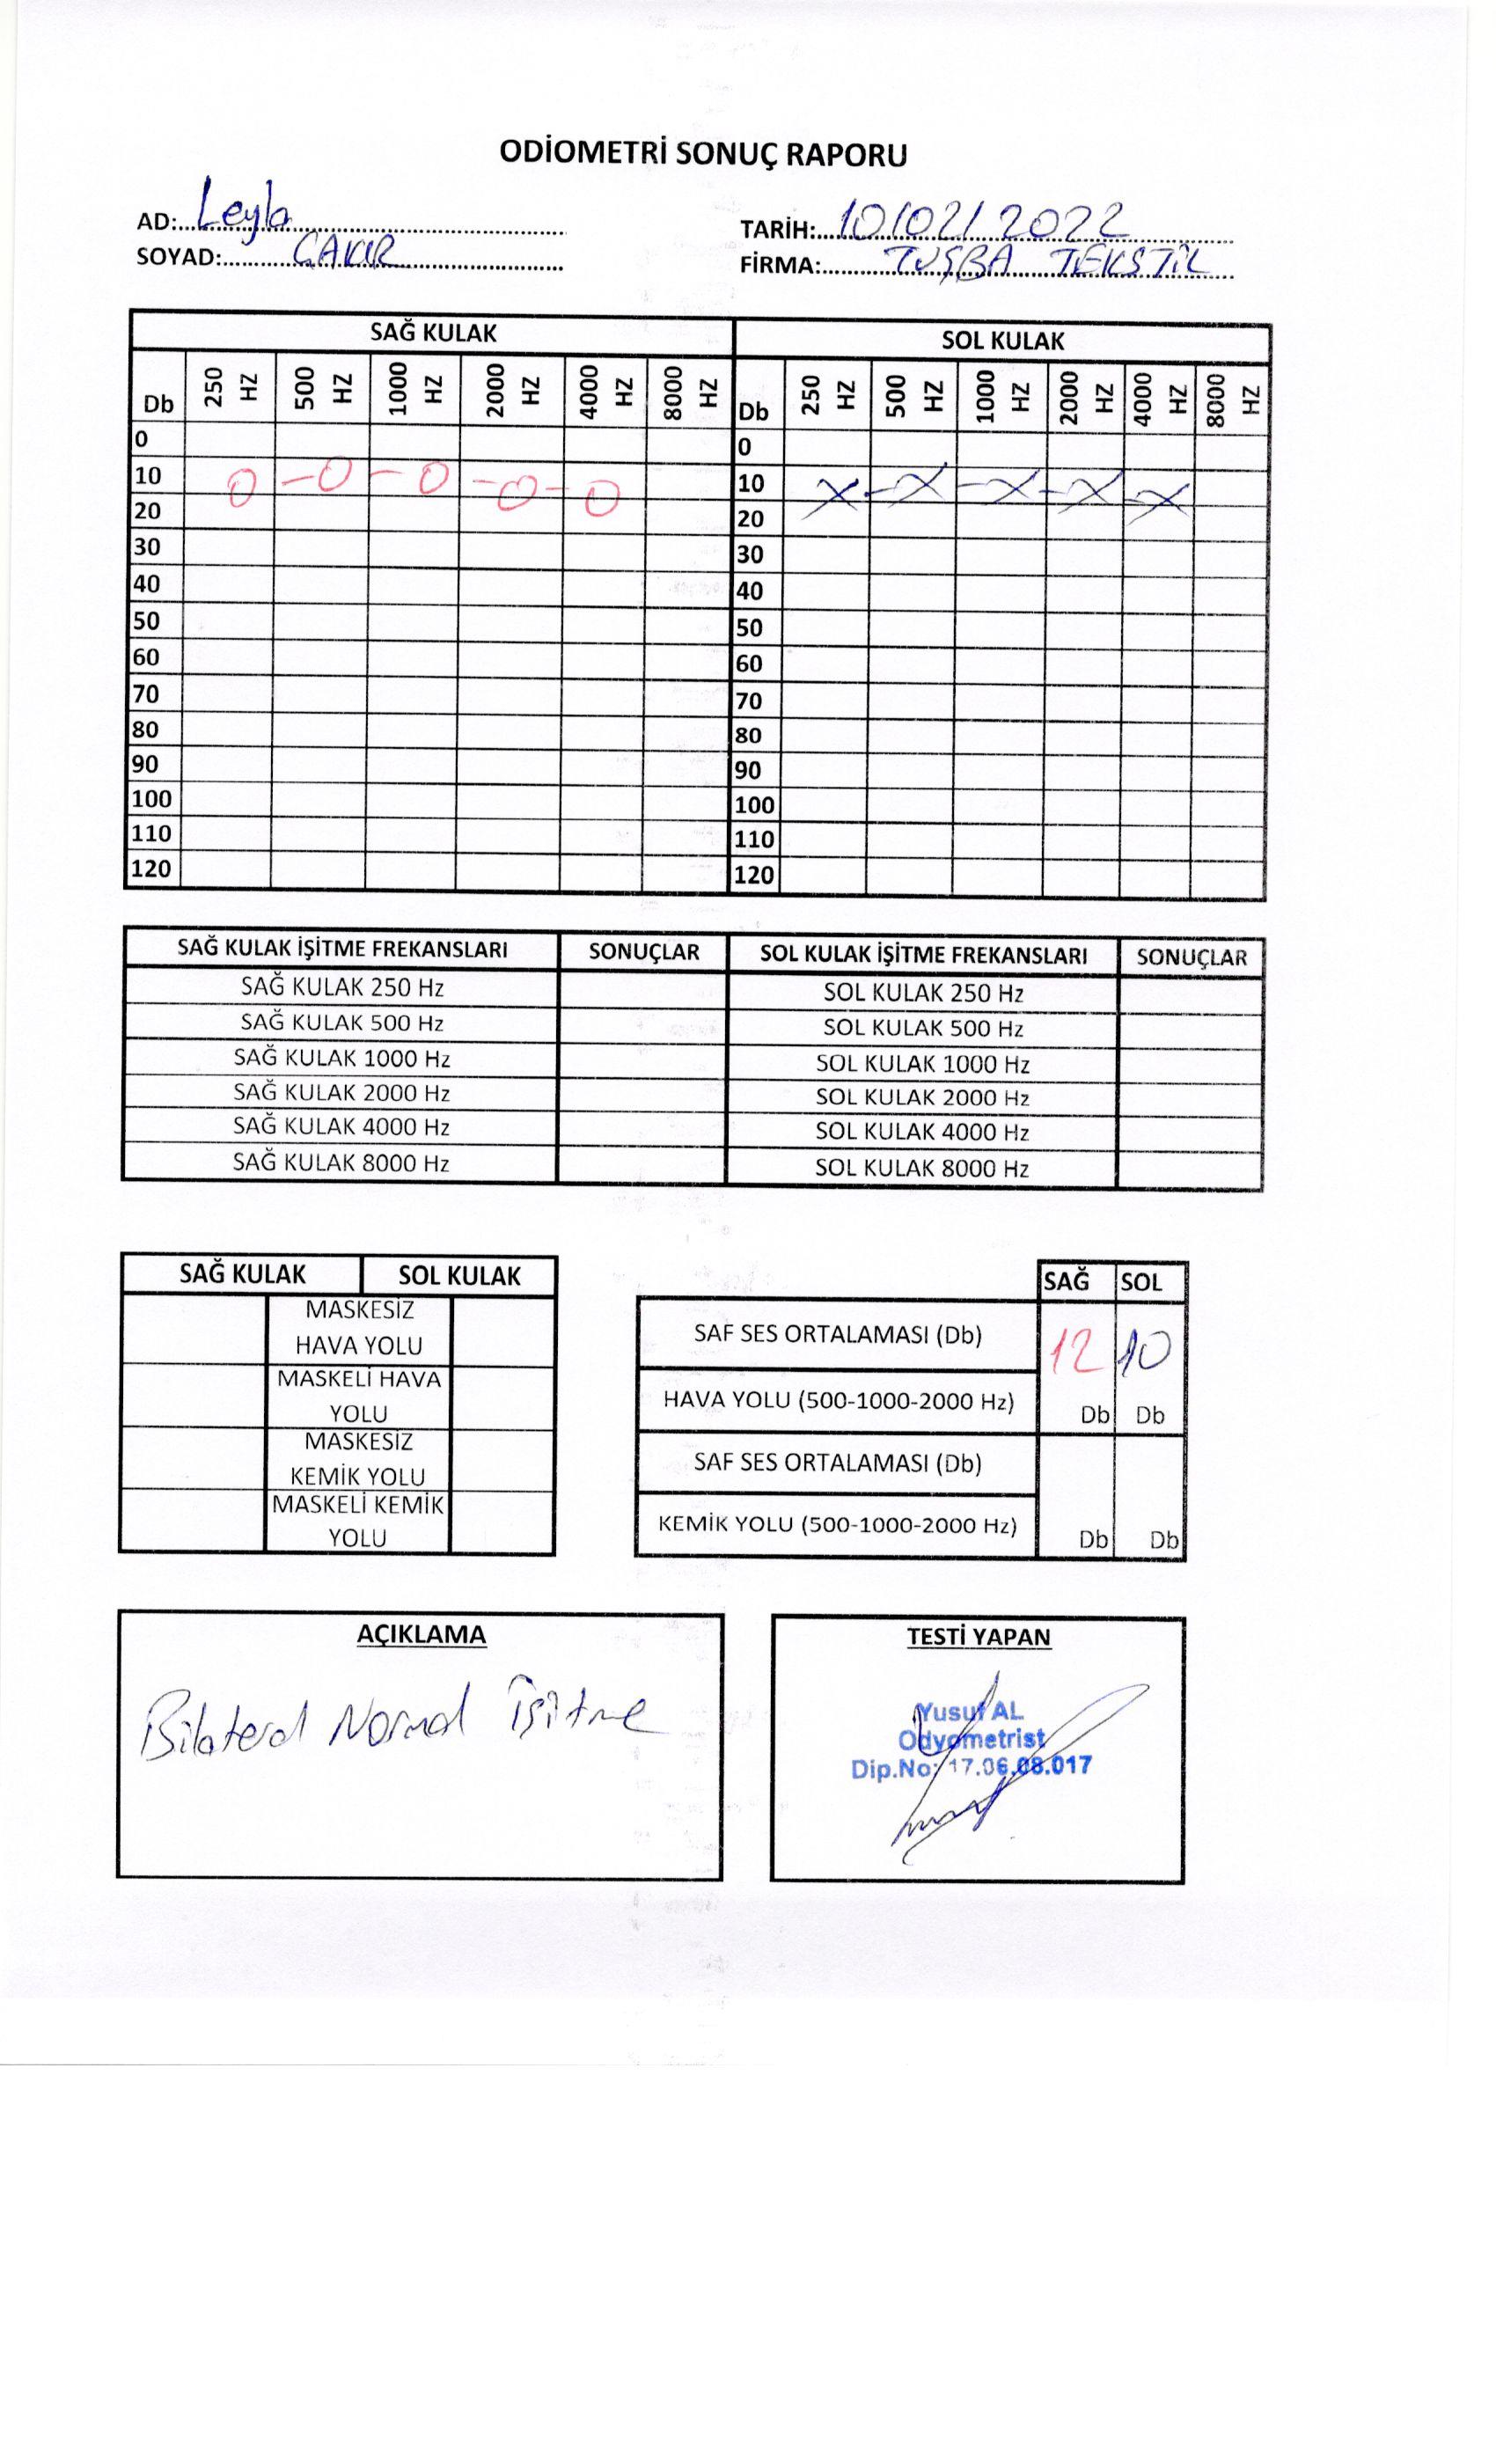 ODİOMETRİ SONUÇ RAPORU
AD: Leyla
TARİH: 10/02/2022
SOYAD: ÇAKIR
FİRMA: TUŞBA TEKSTİL
SAĞ KULAK SOL KULAK
Db 250 HZ 500 HZ 1000 HZ 2000 HZ 4000 HZ 8000 HZ Db 250 HZ 500 HZ 1000 HZ 2000 HZ 4000 HZ 8000 HZ
0 0
10 10
20 20
30 30
40 40
50 50
60 60
70 70
80 80
90 90
100 100
110 110
120 120
SAĞ KULAK İŞİTME FREKANSLARI SONUÇLAR SOL KULAK İŞİTME FREKANSLARI SONUÇLAR
SAĞ KULAK 250 Hz SOL KULAK 250 Hz
SAĞ KULAK 500 Hz SOL KULAK 500 Hz
SAĞ KULAK 1000 Hz SOL KULAK 1000 Hz
SAĞ KULAK 2000 Hz SOL KULAK 2000 Hz
SAĞ KULAK 4000 Hz SOL KULAK 4000 Hz
SAĞ KULAK 8000 Hz SOL KULAK 8000 Hz
SAĞ KULAK SOL KULAK
MASKESİZ
HAVA YOLU
MASKELİ HAVA
YOLU
MASKESİZ
KEMİK YOLU
MASKELİ KEMİK
YOLU
SAĞ SOL
SAF SES ORTALAMASI (Db) 12 10
HAVA YOLU (500-1000-2000 Hz) Db Db
SAF SES ORTALAMASI (Db)
KEMİK YOLU (500-1000-2000 Hz) Db Db
AÇIKLAMA
Bilateral Normal İşitme
TESTİ YAPAN
Yusuf AL
Odyometrist
Dip.No: 17.06.08.017